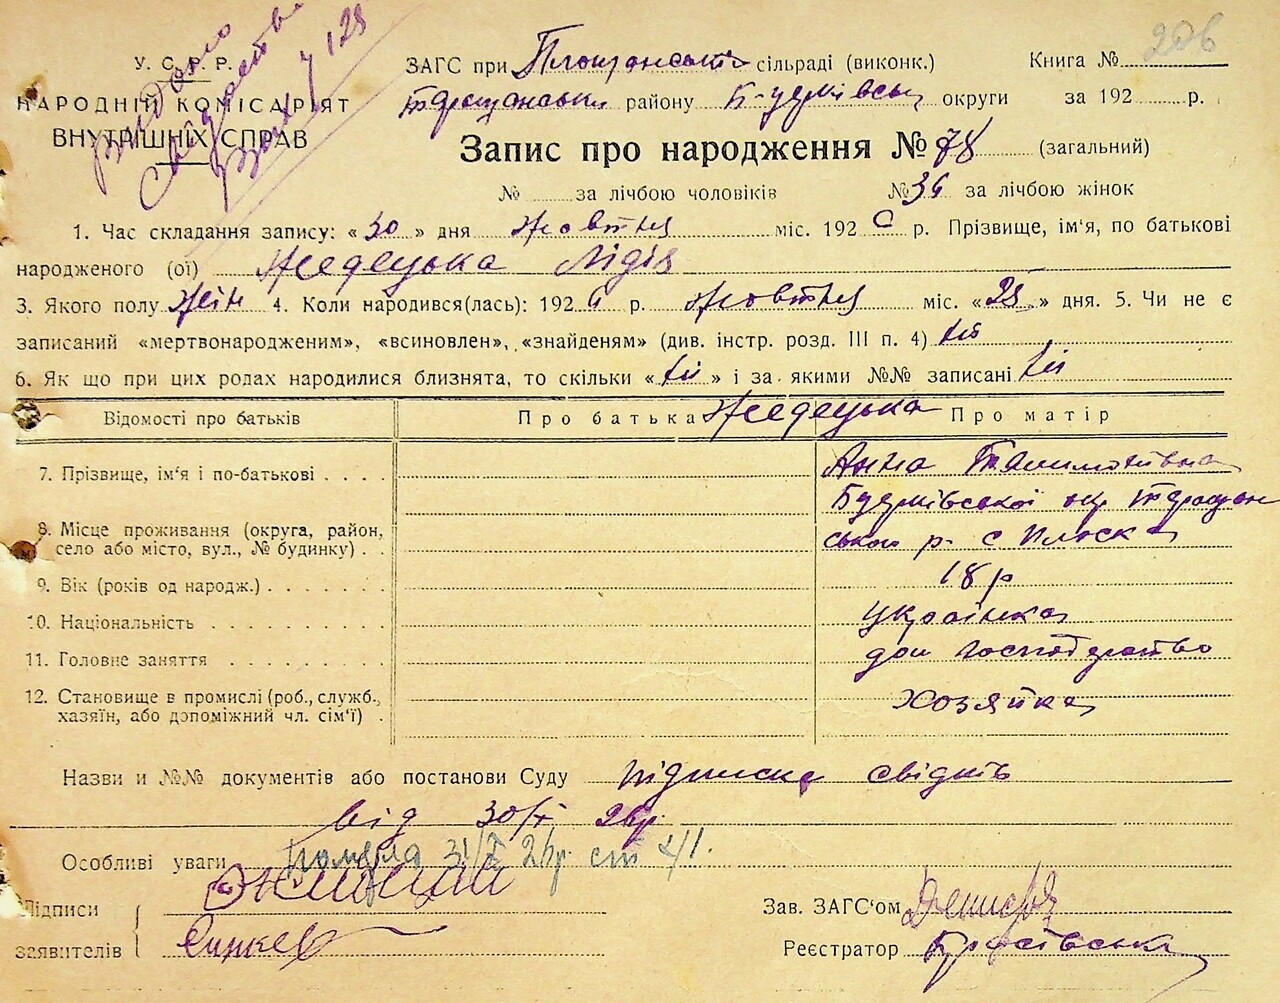 206
Видано
Свідоцтво
128
У. С. Р. Р.
НАРОДНІЙ КОМІСАРІЯТ
ВНУТРІШНІХ СПРАВ
ЗАГС при Площанські сільраді (виконк.) Книга №
Таращанськи району Б-церківськ округи за 192 р.
Запис про народження № 78 (загальний)
№ за лічбою чоловіків № 36 за лічбою жінок
1. Час складання запису: « 30 » дня жовтня міс. 192 6 р. Прізвище, ім'я, по батькові
народженого (ої) Жедецька Лідія
3. Якого полу жін 4. Коли народився(лась): 192 6 р. жовтня міс. « 25 » дня. 5. Чи не є
записаний «мертвонародженим», «всиновлен», «знайденям» (див. інстр. розд. III п. 4) ні
6. Як що при цих родах народилися близнята, то скільки « ні » і за якими №№ записані ні
Відомості про батьків Про батька Жедецька Про матір
7. Прізвище, ім'я і по-батькові . . . . Анна
8. Місце проживання (округа, район, село або місто, вул., № будинку) . . Б церківської окр Таращан
ського р. с Плоска
9. Вік (років од народж.) . . . . . . . 18 р
10. Національність . . . . . . . . українка
11. Головне заняття . . . . . . . . дом господарство
12. Становище в промислі (роб., служб., хазяїн, або допоміжний чл. сім'ї) . хозяйка
Назви и №№ документів або постанови Суду підписка свідків
від 30/X 26р.
Особливі уваги померла 31/X 26р. ст 41.
Підписи
заявителів
Зав. ЗАГС'ом
Реєстратор